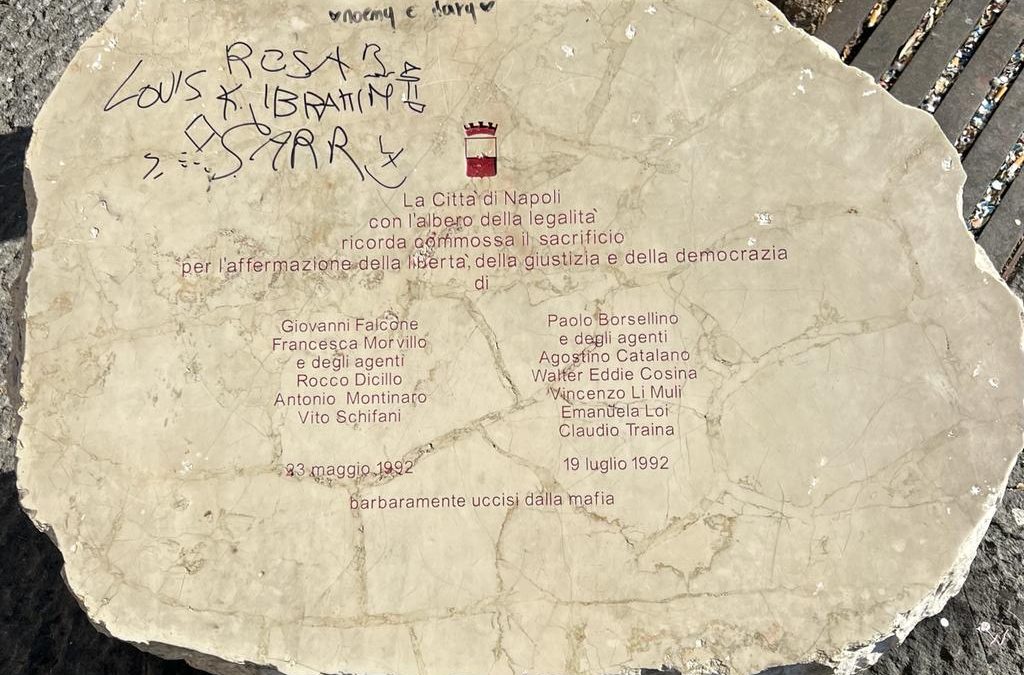 ♥noemy e dary♥
ROSA B
LOUIS K. IBRAHIM
SARR
La Città di Napoli
con l'albero della legalità
ricorda commossa il sacrificio
per l'affermazione della libertà, della giustizia e della democrazia
di
Giovanni Falcone
Francesca Morvillo
e degli agenti
Rocco Dicillo
Antonio Montinaro
Vito Schifani
23 maggio 1992
Paolo Borsellino
e degli agenti
Agostino Catalano
Walter Eddie Cosina
Vincenzo Li Muli
Emanuela Loi
Claudio Traina
19 luglio 1992
barbaramente uccisi dalla mafia